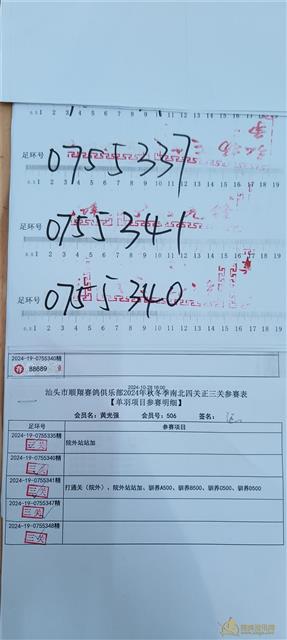 足环号 0755337
s.s1 1 2 3 4 5 6 7 8 9 10 11 12 13 14 15 16 17 18 19
足环号 0755341
s.s1 1 2 3 4 5 6 7 8 9 10 11 12 13 14 15 16 17 18 19
足环号 0755340
2024-19-0755340精
88689
2024-10-28 16:00
汕头市顺翔赛鸽俱乐部2024年秋冬季南北四关正三关参赛表
【单羽项目参赛明细】
会员名：黄光强 会员号：506 签名：
足环号 参赛项目
2024-19-0755335精 院外站站加
三关
2024-19-0755340精
三关
2024-19-0755341精 打通关（院外）、院外站站加、驯养A500、驯养B500、驯养C500、驯养D500
三关
2024-19-0755347精
三关
2024-19-0755348精
三关